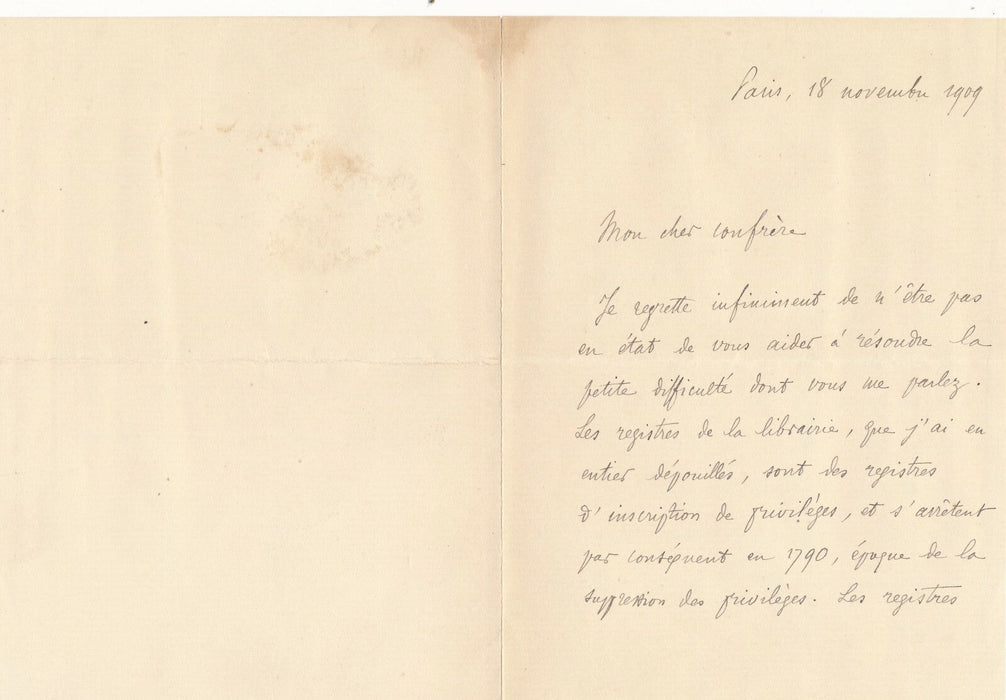 Paris, 18 novembre 1909
Mon cher confrère
Je regrette infiniment de n'être pas
en état de vous aider à résoudre la
petite difficulté dont vous me parlez.
Les registres de la librairie, que j'ai en
entier dépouillés, sont des registres
d'inscription de privilèges, et s'arrêtent
par conséquent en 1790, époque de la
suppression des privilèges. Les registres